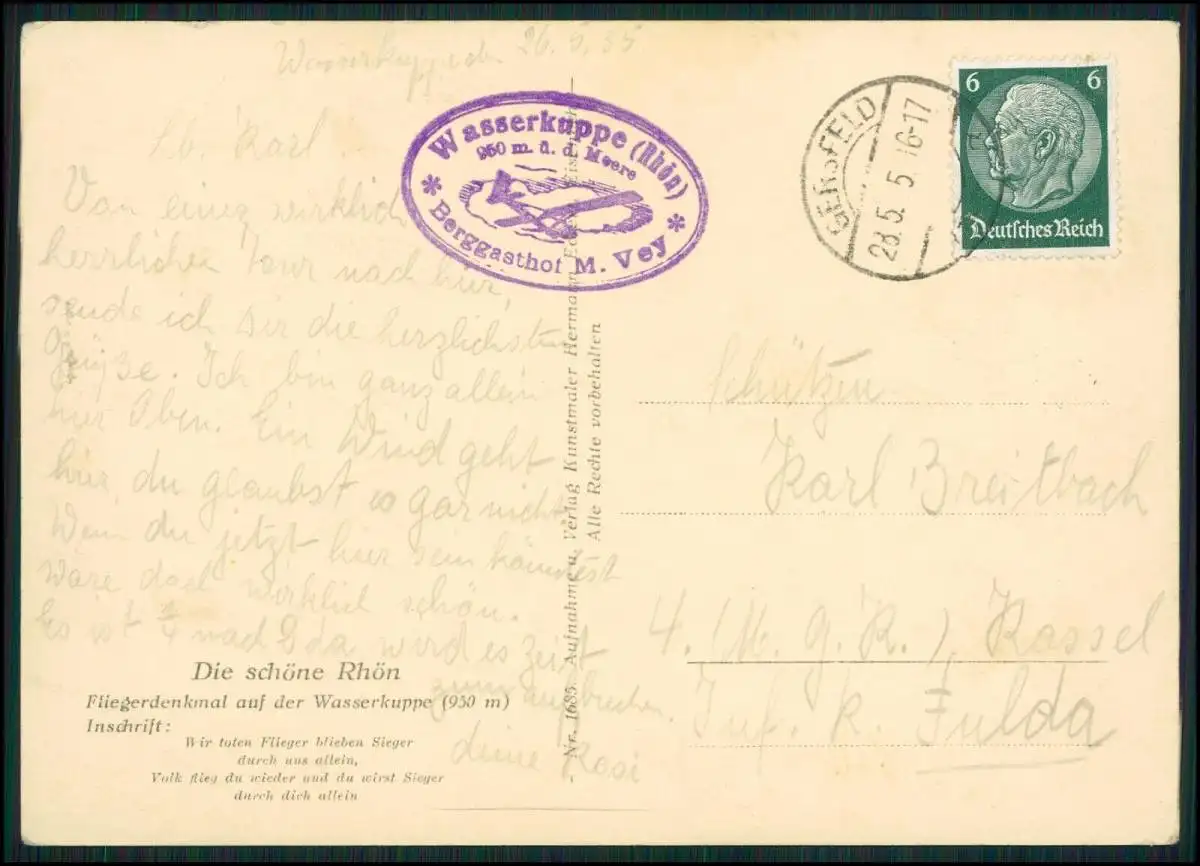 Wasserkuppe den 26.5.35
Lb. Karl.
Von einer wirklich
herrlichen Tour nach hier,
sende ich Dir die herzlichsten
Grüße. Ich bin ganz allein
hier Oben. Ein Wind geht
hier du glaubst es gar nicht
Wenn du jetzt hier sein könntest
wäre doch wirklich schön.
Es ist 1/4 nach 8 da wird es Zeit
zum aufbrechen.
deine Rosi
Wasserkuppe (Rhön)
950 m ü. d. Meere
* Berggasthof M. Vey *
GERSFELD
28.5. 5. 16-17
6 6
Deutsches Reich
Schützen
Karl Breitbach
4. (M. G. K.), Kassel
Inf. R. Fulda
Die schöne Rhön
Fliegerdenkmal auf der Wasserkuppe (950 m)
Inschrift:
Wir toten Flieger blieben Sieger
durch uns allein,
Volk flieg du wieder und du wirst Sieger
durch dich allein
Nr. 1685. Aufnahme u. Verlag Kunstmaler Hermann
Alle Rechte vorbehalten